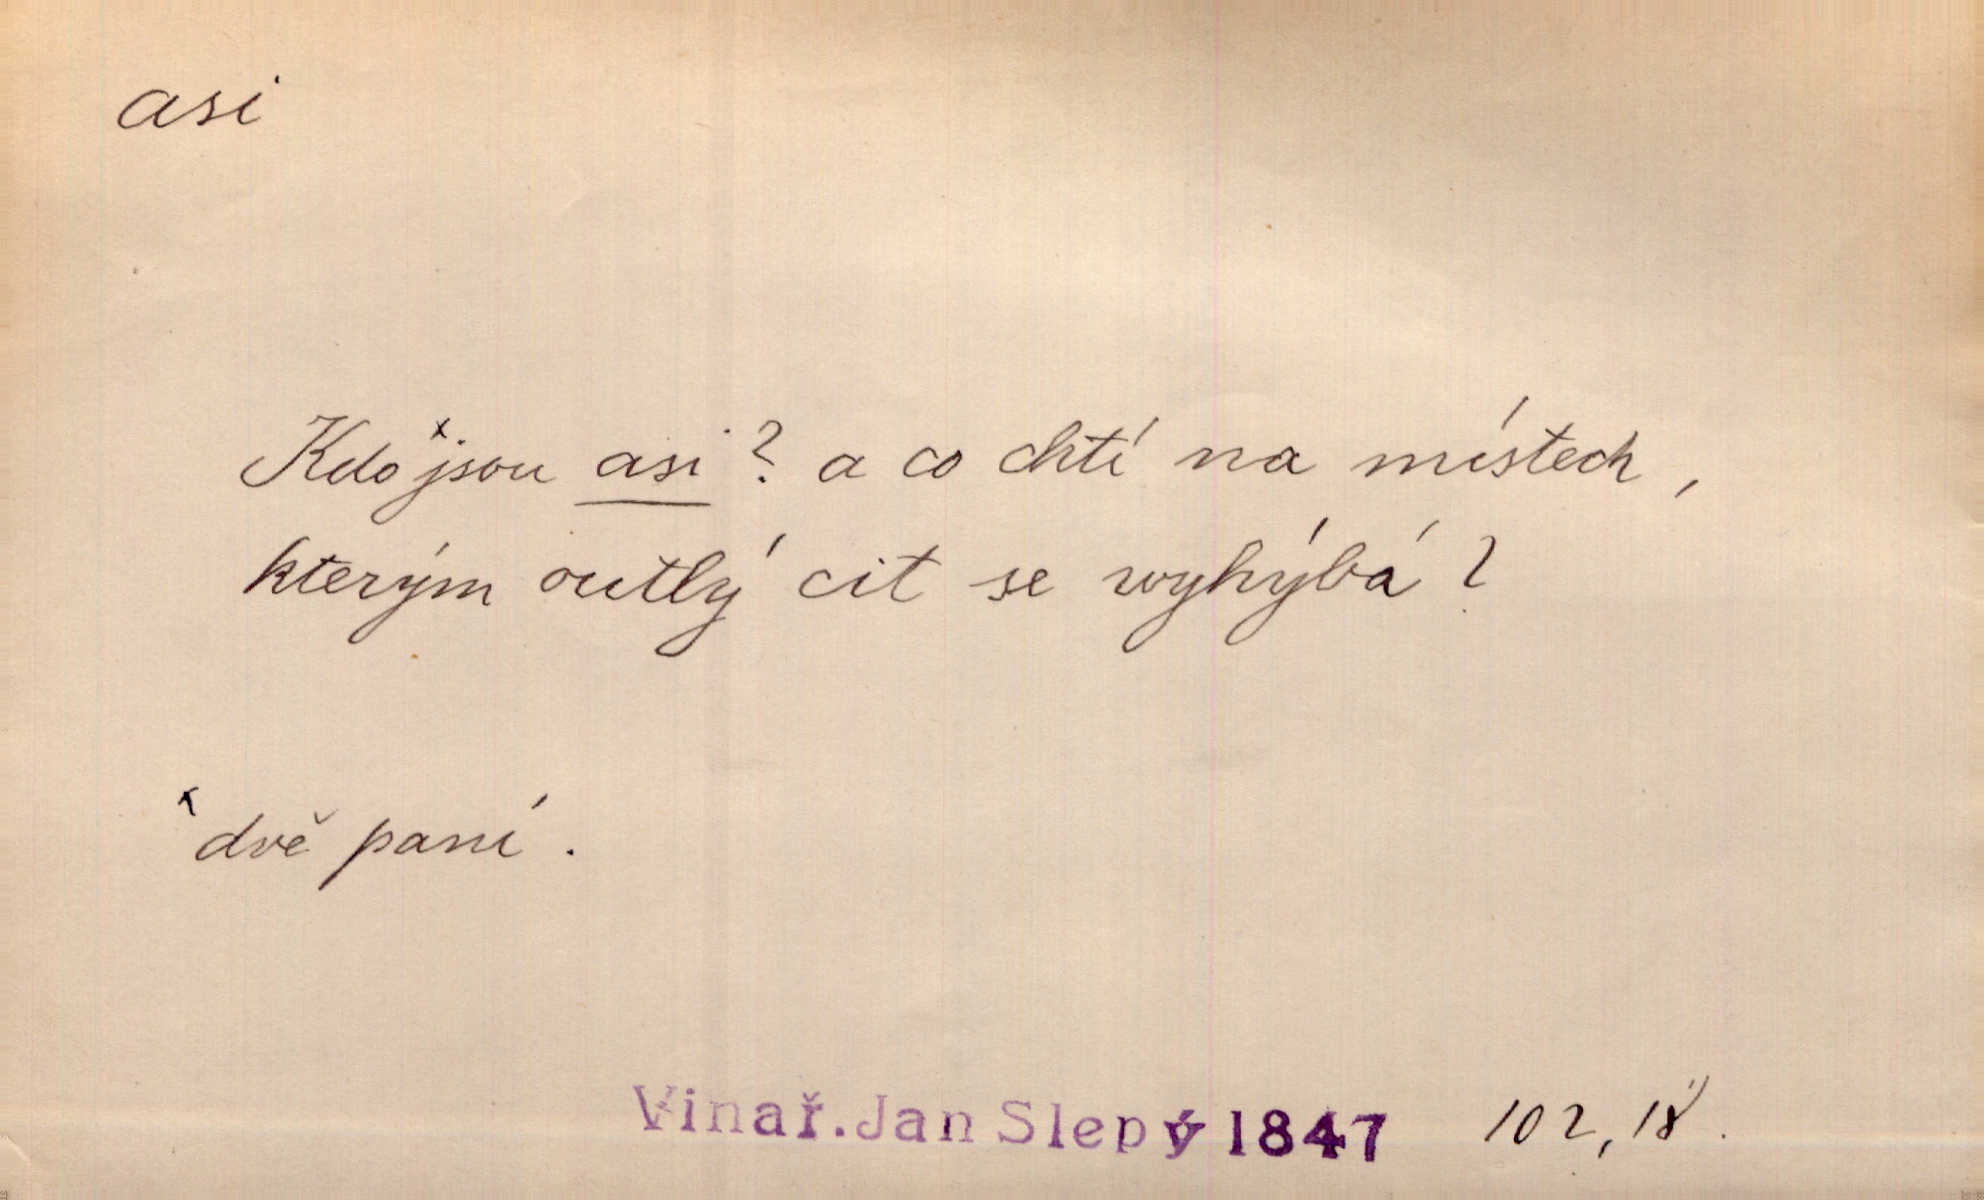 asi
Kdo ˣjsou asi? a co chtí na místech,
kterým outlý cit se wyhýbá?
ˣ dvě paní.
Vinař.Jan Slepý 1847 102, 18.